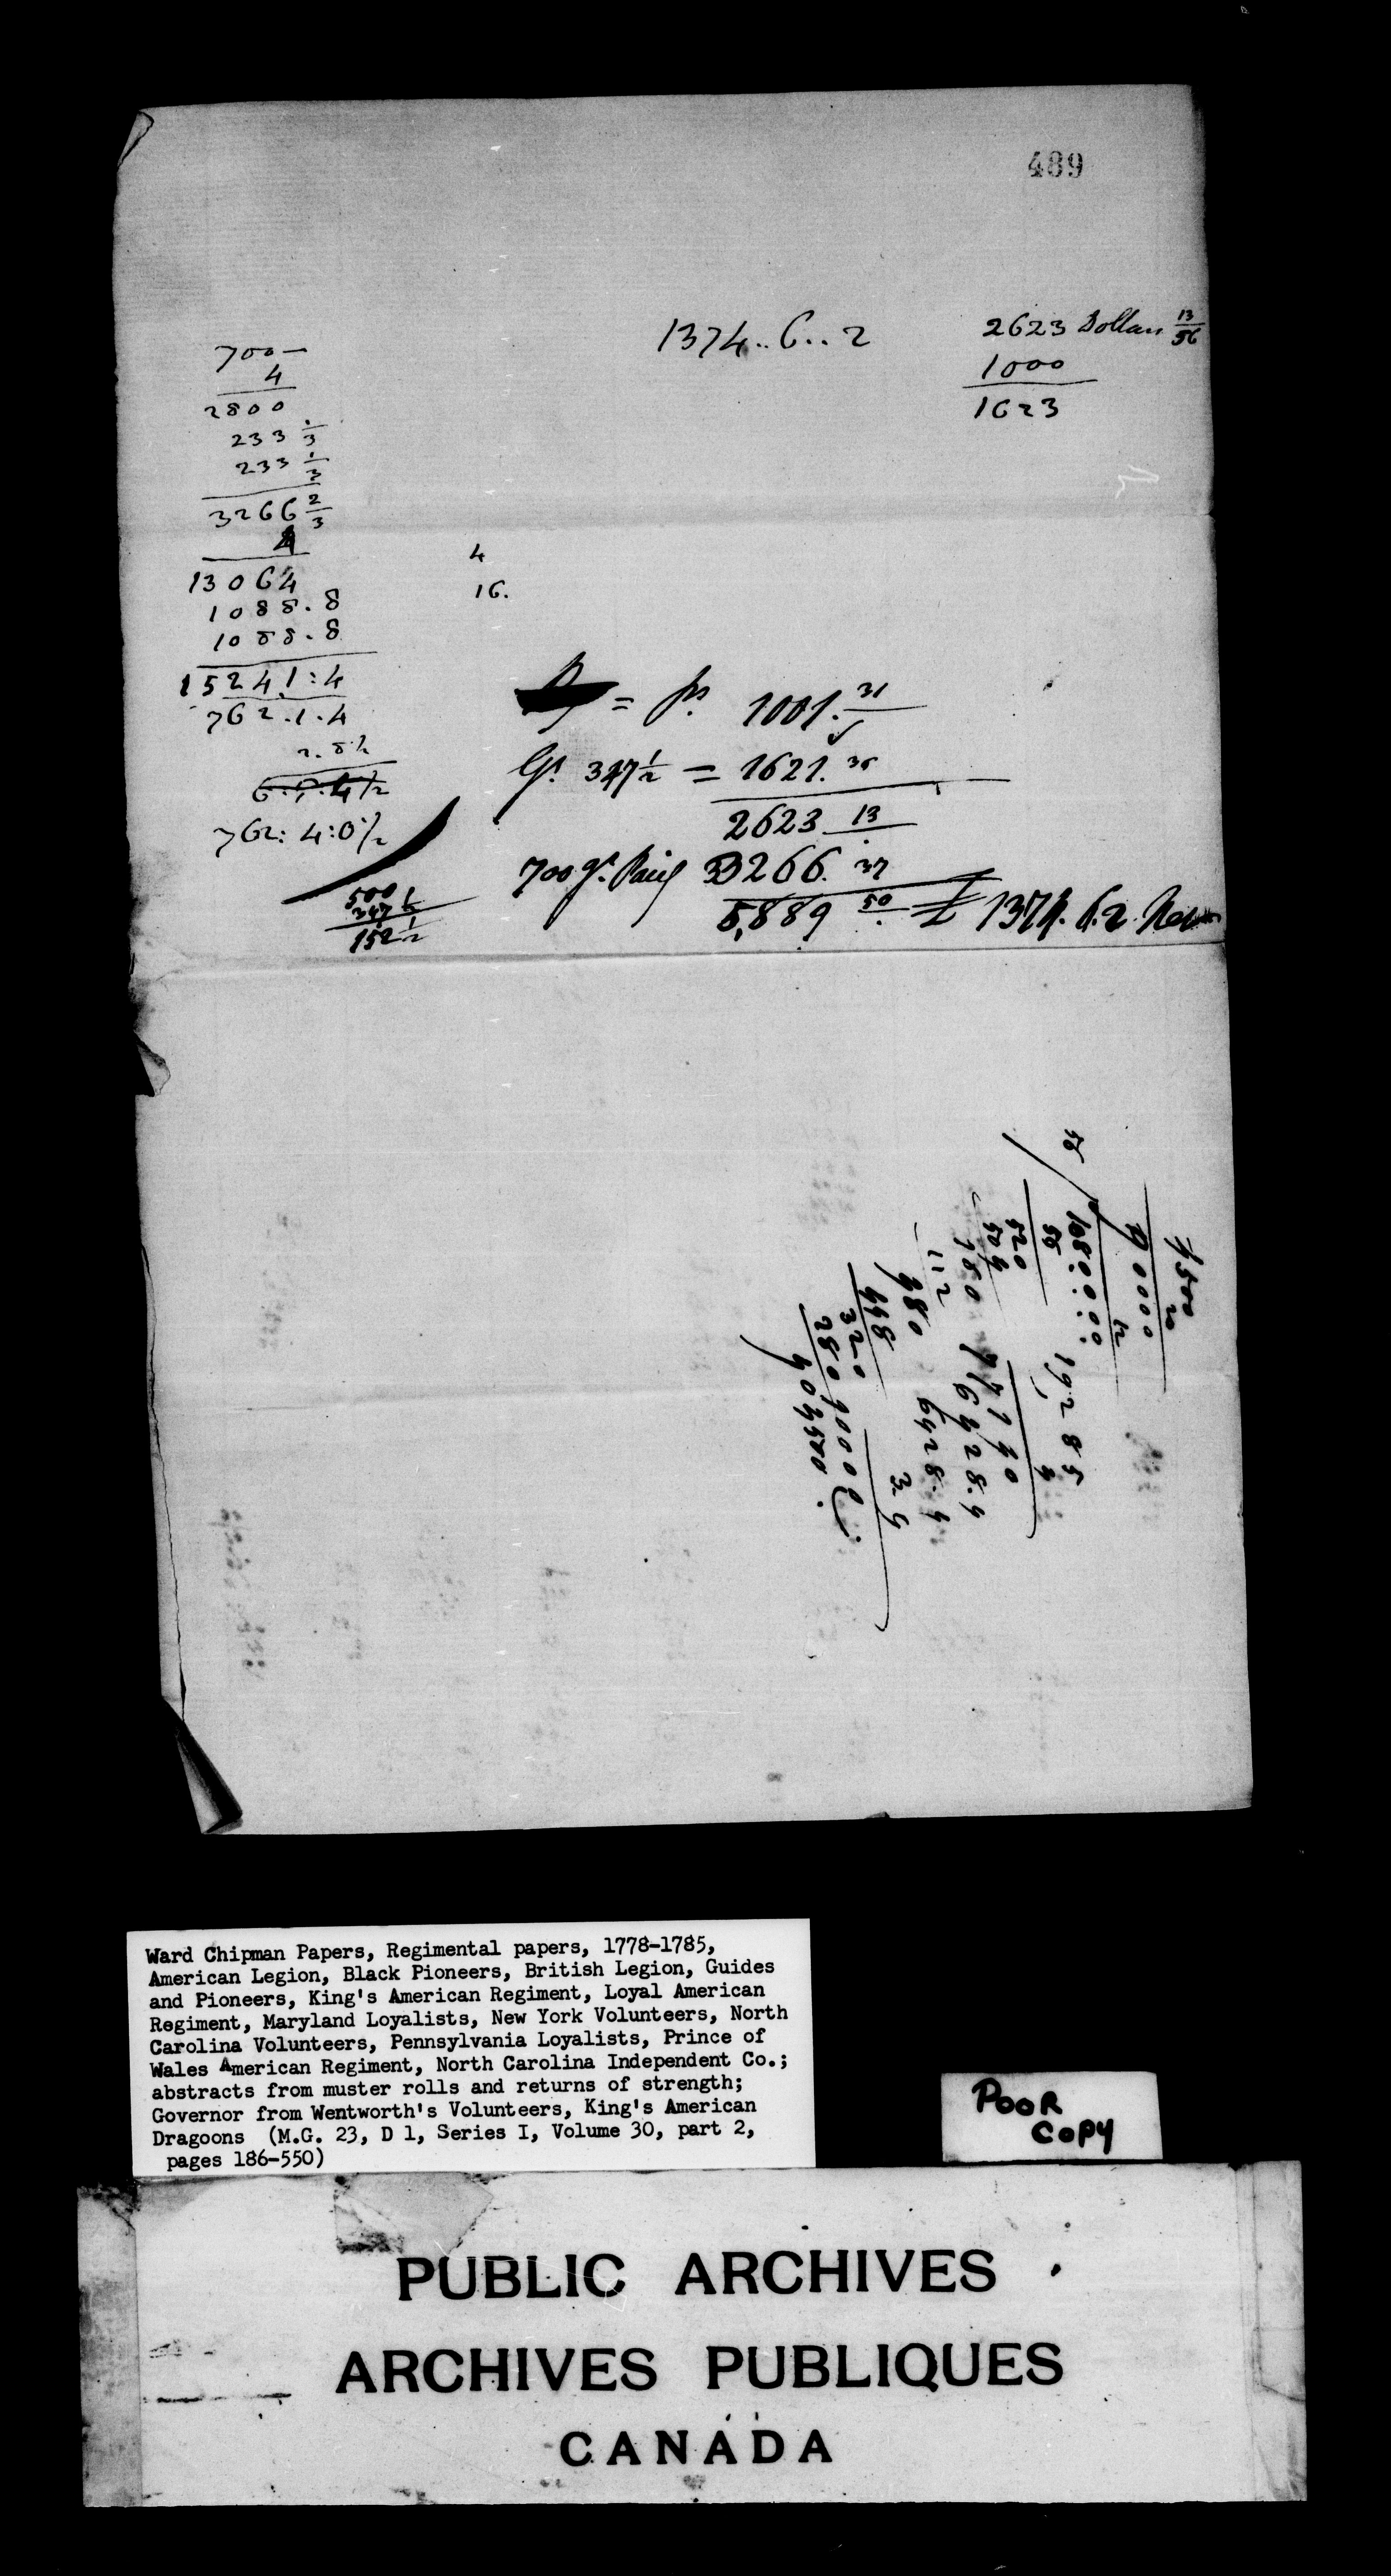 489
1374..6..2
2623 Dollars 13/56
1000
1623
700—
4
2800
233 1/3
233 1/3
3266 2/3
4
13064
1088.8
1088.8
15241:4
762.1.4
2.8½
6.9.4½
762:4:0½
4
16.
= ps 1001. 31
Gs. 347½ = 1621. 36
2623 13
700 gs. 3266. 37
5,889 50 = £ 1374.6.2
500
347½
152½
4500
20
90000
12
1080000
56
19285
56
520
504
4
77140
160
112
76428.4
480
6428.4
448
3.4
320
280
90000
40
4500
Ward Chipman Papers, Regimental papers, 1778-1785,
American Legion, Black Pioneers, British Legion, Guides
and Pioneers, King's American Regiment, Loyal American
Regiment, Maryland Loyalists, New York Volunteers, North
Carolina Volunteers, Pennsylvania Loyalists, Prince of
Wales American Regiment, North Carolina Independent Co.;
abstracts from muster rolls and returns of strength;
Governor from Wentworth's Volunteers, King's American
Dragoons (M.G. 23, D 1, Series I, Volume 30, part 2,
pages 186-550)
POOR
COPY
PUBLIC ARCHIVES
ARCHIVES PUBLIQUES
CANADA